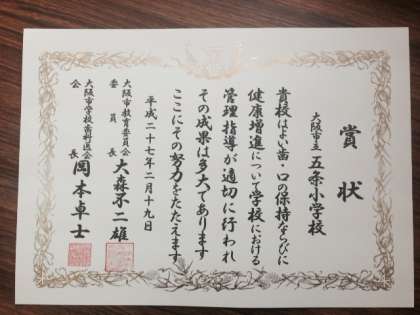 賞状
大阪市立 五条小学校
貴校はよい歯・口の保持ならびに
健康増進について学校における
管理指導が適切に行われ
その成果は多大であります
ここにその努力をたたえます
平成二十七年二月十九日
大阪市教育委員会
委員長 大森不二雄
大阪市学校歯科医会
会長 岡本卓士